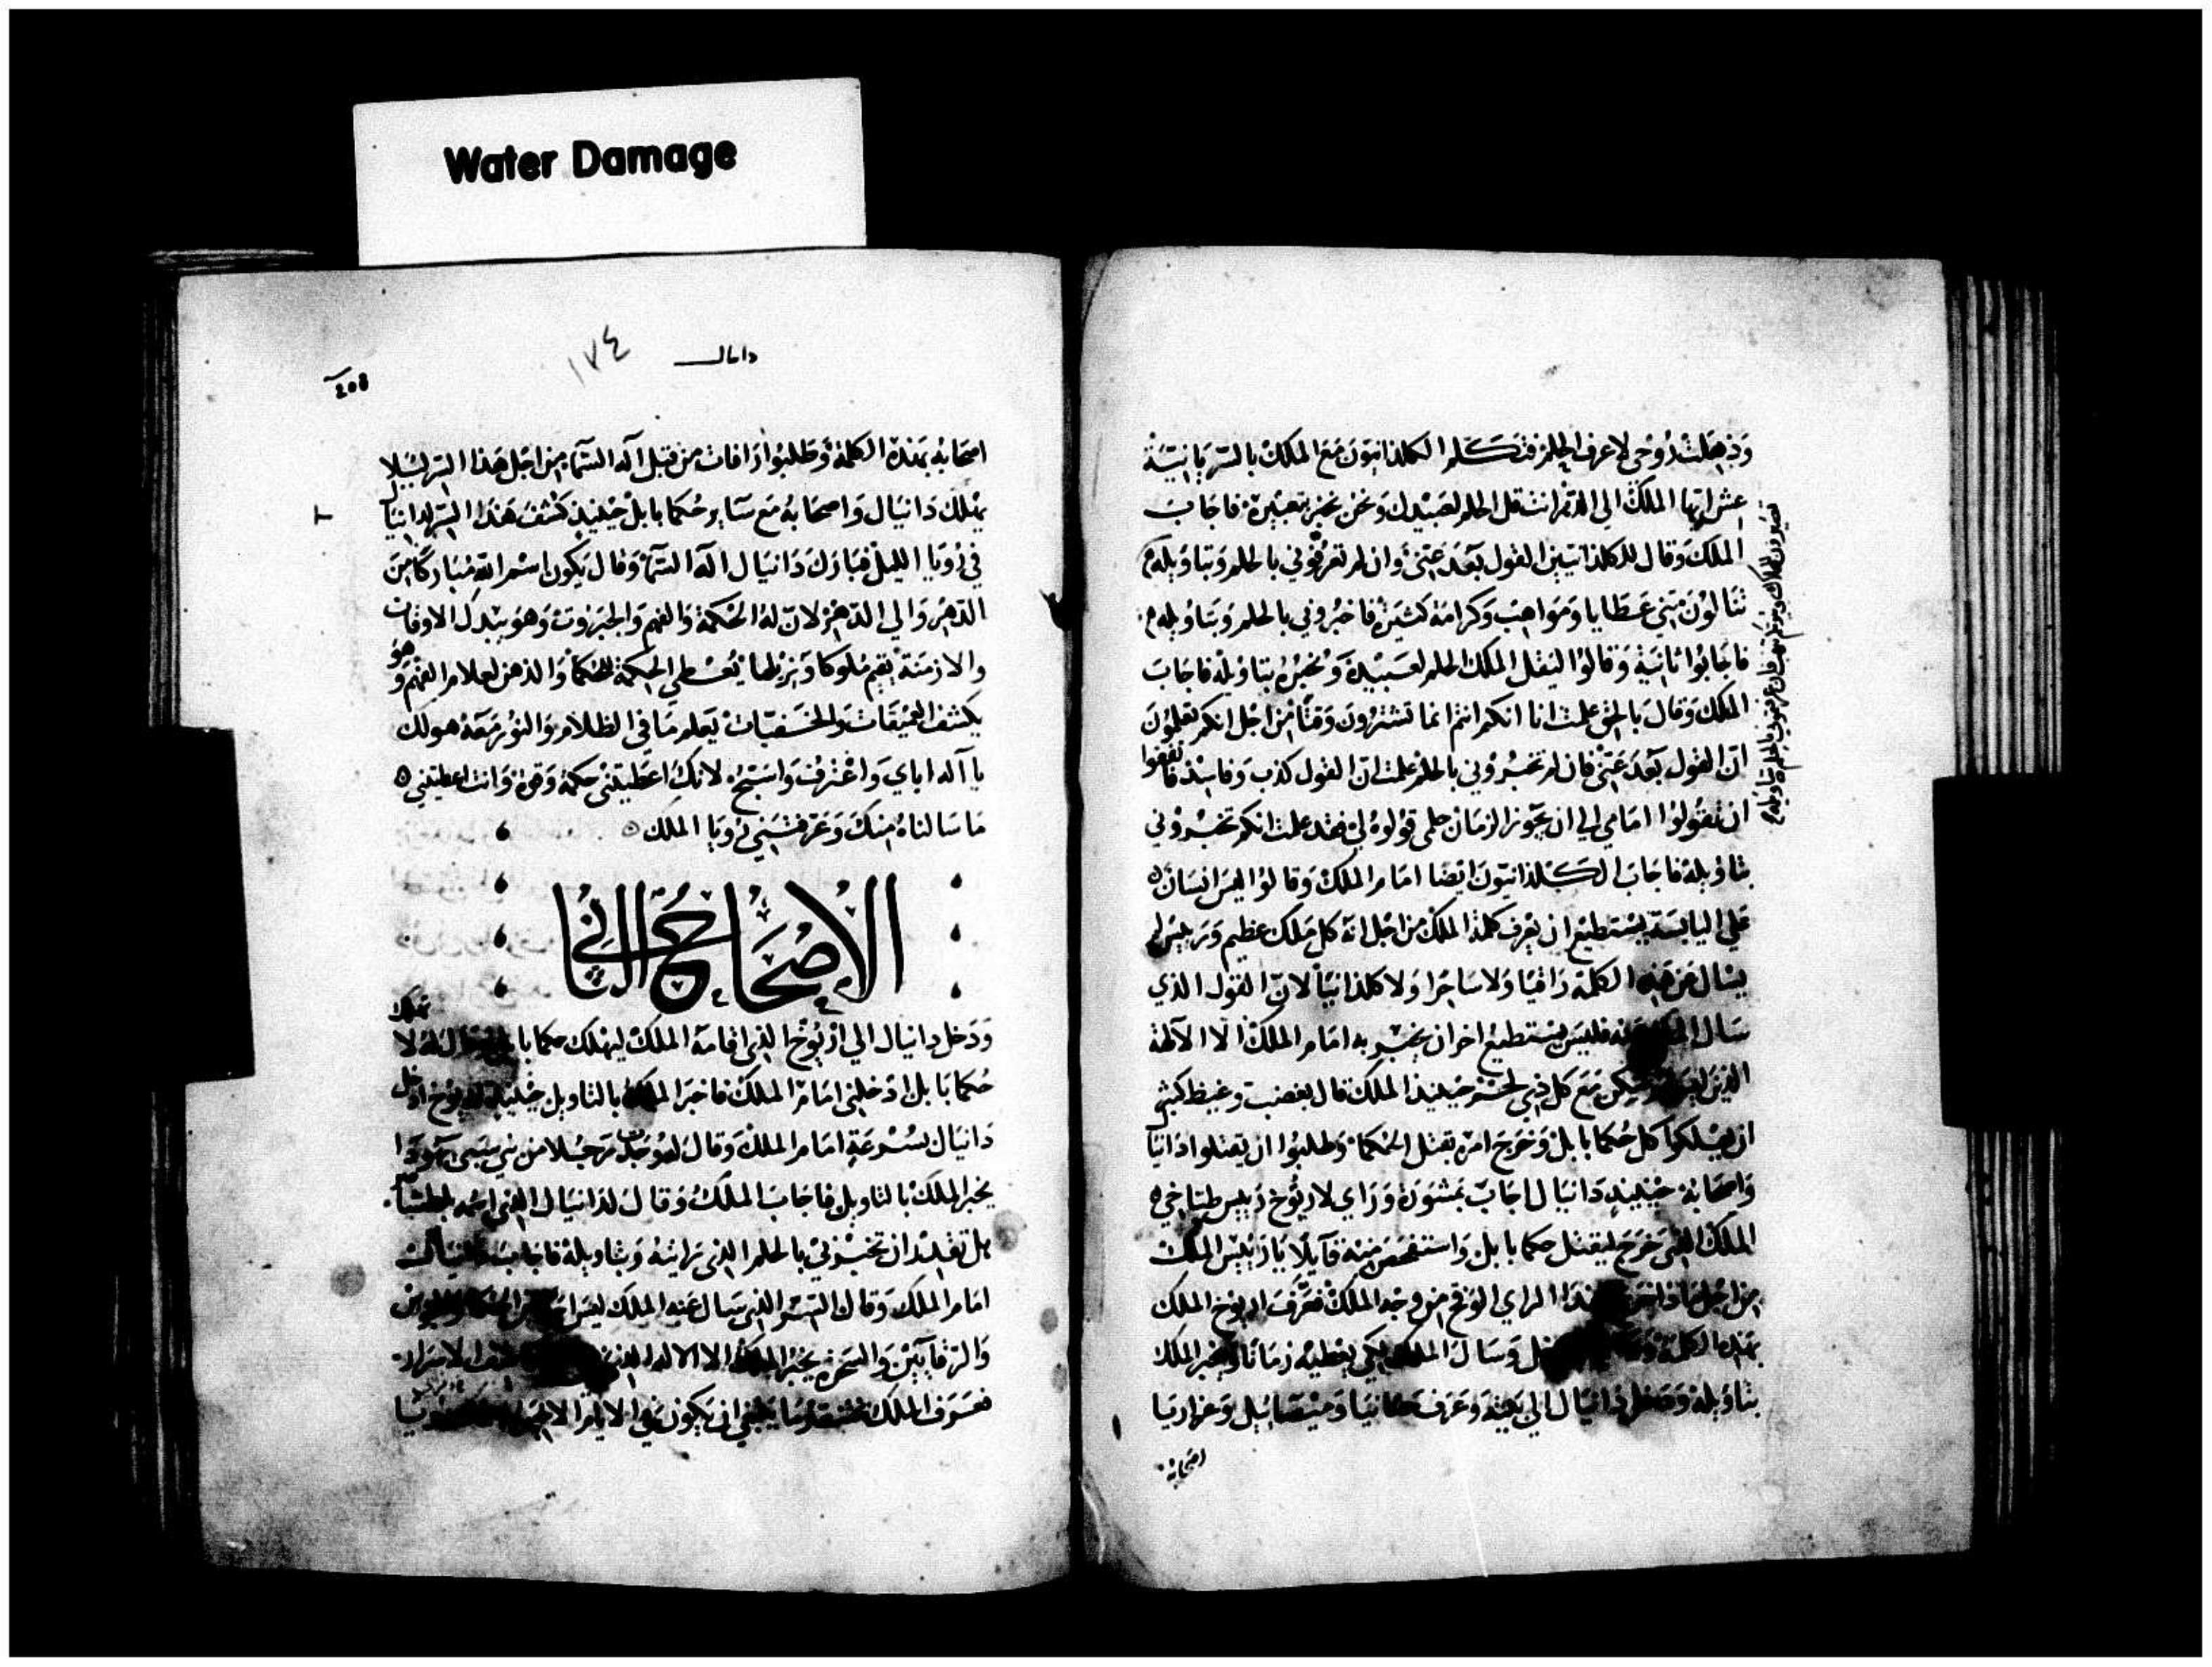 Water Damage
وَذهِلَت رُوحي لاعرف الحلم فتكلم الكلدانيون مَع الملك بالسريانية
عش ايها الملك الي الدهر انت قل الحلم لعبيدك ونحن نخبر بتعبيره فاجاب
الملك وقال للكلدانيين القول بَعدَ عَنِّي وان لم تعرفوني بالحلم وبتاويله
تنالون مني عطايا ومَوَاهِب وكرامة كثيرة فاخبروني بالحلم وبتاويله
فاجابوا ثانية وَقالوا ليقل الملك الحلم لعبيده ونخبره بتاويله فاجاب
الملك وقال بالحق علمت انا انكم انتم انما تشترون وقتًا من اجل انكم تعلمون
ان القول بَعدَ عَنِّي فان لم تخبروني بالحلم علمت ان القول كذب وفاسد
ان تقولوا امامي الي ان يجوز الزمان حلمي قولوه لي فقد علمت انكم تخبروني
بتاويله فاجاب الكلدانيون ايضا امام الملك وقالوا ليس انسان
علي اليابسة يستطيع ان يعرف كلمة الملك من اجل انه كل ملك عظيم وَرَييس لم
يسال عن هذه الكلمة راقيا ولا ساحرا ولا كلدانيا لان القول الذي
سال فليس يستطيع اخر ان يخبر به امام الملك الا الالهة
الذين مَع كل ذي لحم حينيذ الملك قال بغضب وغيظ كثير
ان يهلكوا كل حُكما بابل وخرج امره بقتل الحكما وطلبوا ان يقتلوا دانيا
واصحابه حينيذ دانيال اجاب بمشورة ورَاي لاريوخ رييس طباخي
الملك الذي خرج ليقتل حكما بابل واستفحص منه قايلا يا رييس الملك
من اجل ماذا الراي الوقح من وجه الملك فعَرَّف اريوخ الملك
بهذه الكلمة وسال الملك لكي يعطيه زمانا ويخبر الملك
بتاويله ودخل دانيال الي بيته وعرف حنانيا وميصاييل وعزاريا
اصحابه
دانيال
١٧٤
اصحابه بهذه الكلمة وطلبوا رافات من قبل اله السما من اجل هذا السر ليلا
يهلك دانيال واصحابه مع ساير حُكما بابل حينيذ كشف هَذا السر لدانيال
في رُويا الليل فبارك دانيال اله السما وقال يكون اسم الله مُباركا من
الدهر والي الدهر لان له الحكمة والفهم والجبروت وهو يبدل الاوقات
والازمنة يقيم مُلوكا ويزيلها يُعطي الحكمة للحكما والذهن لعلام الفهم وهو
يكشف العميقات والخفيات يعلم ما في الظلام والنور معه هو لك
يا اله اباي واعترف واسبح لانك اعطيتني حكمة وقوة وانت اعطيتني
ما سالناه منك وعرفتني رُويا الملك
الاصحاح الثاني
ودخل دانيال الي اريوخ الذي اقامه الملك ليهلك حكما بابل وقال له لا تهلك
حُكما بابل ادخلني امام الملك فاخبر الملك بالتاويل حينيذ اريوخ ادخل
دانيال بسرعة امام الملك وقال له وجدت رجلا من بني سبي يهودا
يخبر الملك بالتاويل فاجاب الملك وقال لدانيال الذي اسمه بلطشاصر
هل تقدر ان تخبرني بالحلم الذي رايته وبتاويله فاجاب دانيال
امام الملك وقال السر الذي سال عنه الملك ليس
والرقايين والسحرة يخبر الملك الا الاله الاسرار
فعرف الملك ما ينبغي ان يكون في الايام الاخيرة